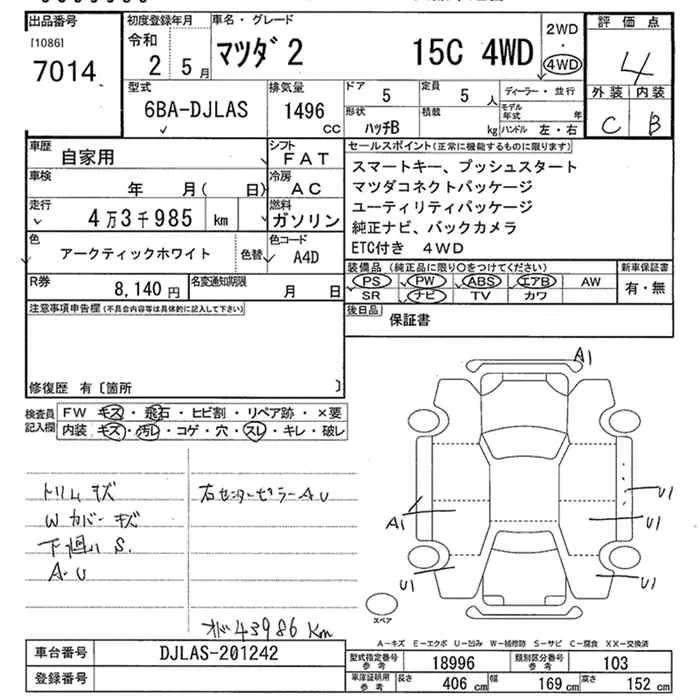 出品番号 初度登録年月 車名・グレード 評価点
[1086] 令和
7014 2 5月 マツダ2 15C 4WD 2WD・4WD 4
型式 排気量 ドア 5 定員 5人 ディーラー・並行 外装 内装
6BA-DJLAS 1496 CC 形状 ハッチB 積載 kg モデル年式 年 C B
ハンドル 左・右
車歴 自家用 シフト FAT セールスポイント(正常に機能するものに限ります)
車検 年 月( 日) 冷房 AC スマートキー、プッシュスタート
マツダコネクトパッケージ
走行 4万3千985 km 燃料 ガソリン ユーティリティパッケージ
純正ナビ、バックカメラ
色 アークティックホワイト 色替 色コード A4D ETC付き 4WD
装備品(純正品に限り〇をつけてください) 新車保証書
R券 8,140円 名変通知期限 月 日 PS PW ABS エアB AW 有・無
SR ナビ TV カワ
注意事項申告欄(不具合内容等は具体的に記入して下さい) 後日品 保証書
修復歴 有〔箇所 〕
検査員記入欄 FW キズ・飛石・ヒビ割・リペア跡・×要
内装 キズ・汚レ・コゲ・穴・スレ・キレ・破レ
A1
トリムキズ 右センターピラーAU
Wカバーキズ
下廻りS.
A・U
A1 U1
U1
U1 U1
スペア
オド43986Km
A-キズ E-エクボ U-凹み W-補修跡 S-サビ C-腐食 XX-交換済
車台番号 DJLAS-201242 型式指定番号 参考 18996 類別区分番号 参考 103
登録番号 車庫証明用 参考 長さ 406 cm 幅 169 cm 高さ 152 cm